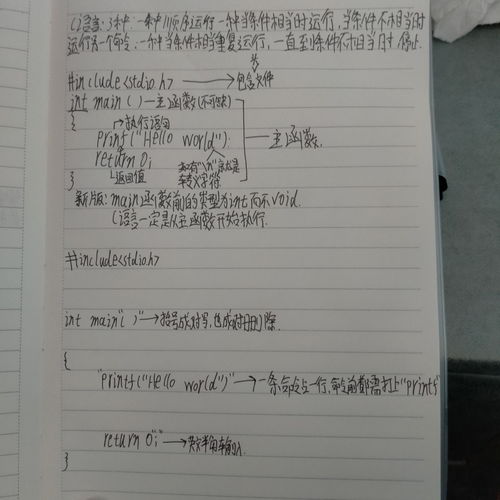 C语言:3种:一种顺序运行一种当条件相当时运行,当条件不相当时
运行另一个命令:一种当条件相当重复运行,一直到条件不相当时停止.
#include<stdio.h> → 包含文件
int main() — 主函数(不可缺)
{
执行语句
printf("Hello world")
return 0; 如有"\n"就是
返回值 转义字符
}
主函数.
新版:main函数前的类型为int而不void.
C语言一定是从主函数开始执行.
#include<stdio.h>
int main"()"→括号成对写,也成对删除.
{
"printf("Hello world")"→一条命令占一行,命令前都需打上"printf"
return 0";"→英文半角输入
}